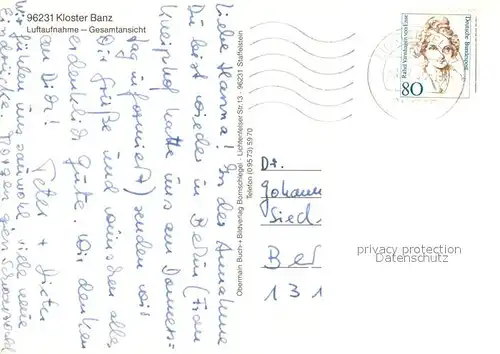 96231 Kloster Banz
Luftaufnahme – Gesamtansicht
Liebe Hanna! In der Annahme
Du bist wieder in Berlin (Frau
Kneiphof hatte uns am Donners-
tag informiert) senden wir
Dir Grüße und wünschen alles
erdenklich Gute. Wir denken
an Dich! Peter + Dieter
Wir fühlen uns sauwohl, viele neue
Eindrücke. Morgen gen
Obermain Buch- + Bildverlag Bornschlegel · Lichtenfelser Str. 13 · 96231 Staffelstein
Telefon (0 95 73) 59 70
Deutsche Bundespost
Rahel Varnhagen von Ense
80
Dr.
Johann
Sied
Ber
131
privacy protection
Datenschutz